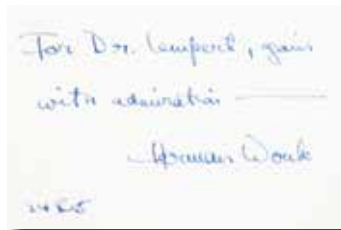 For Dr. Lempert,
with admiration
Herman Wouk